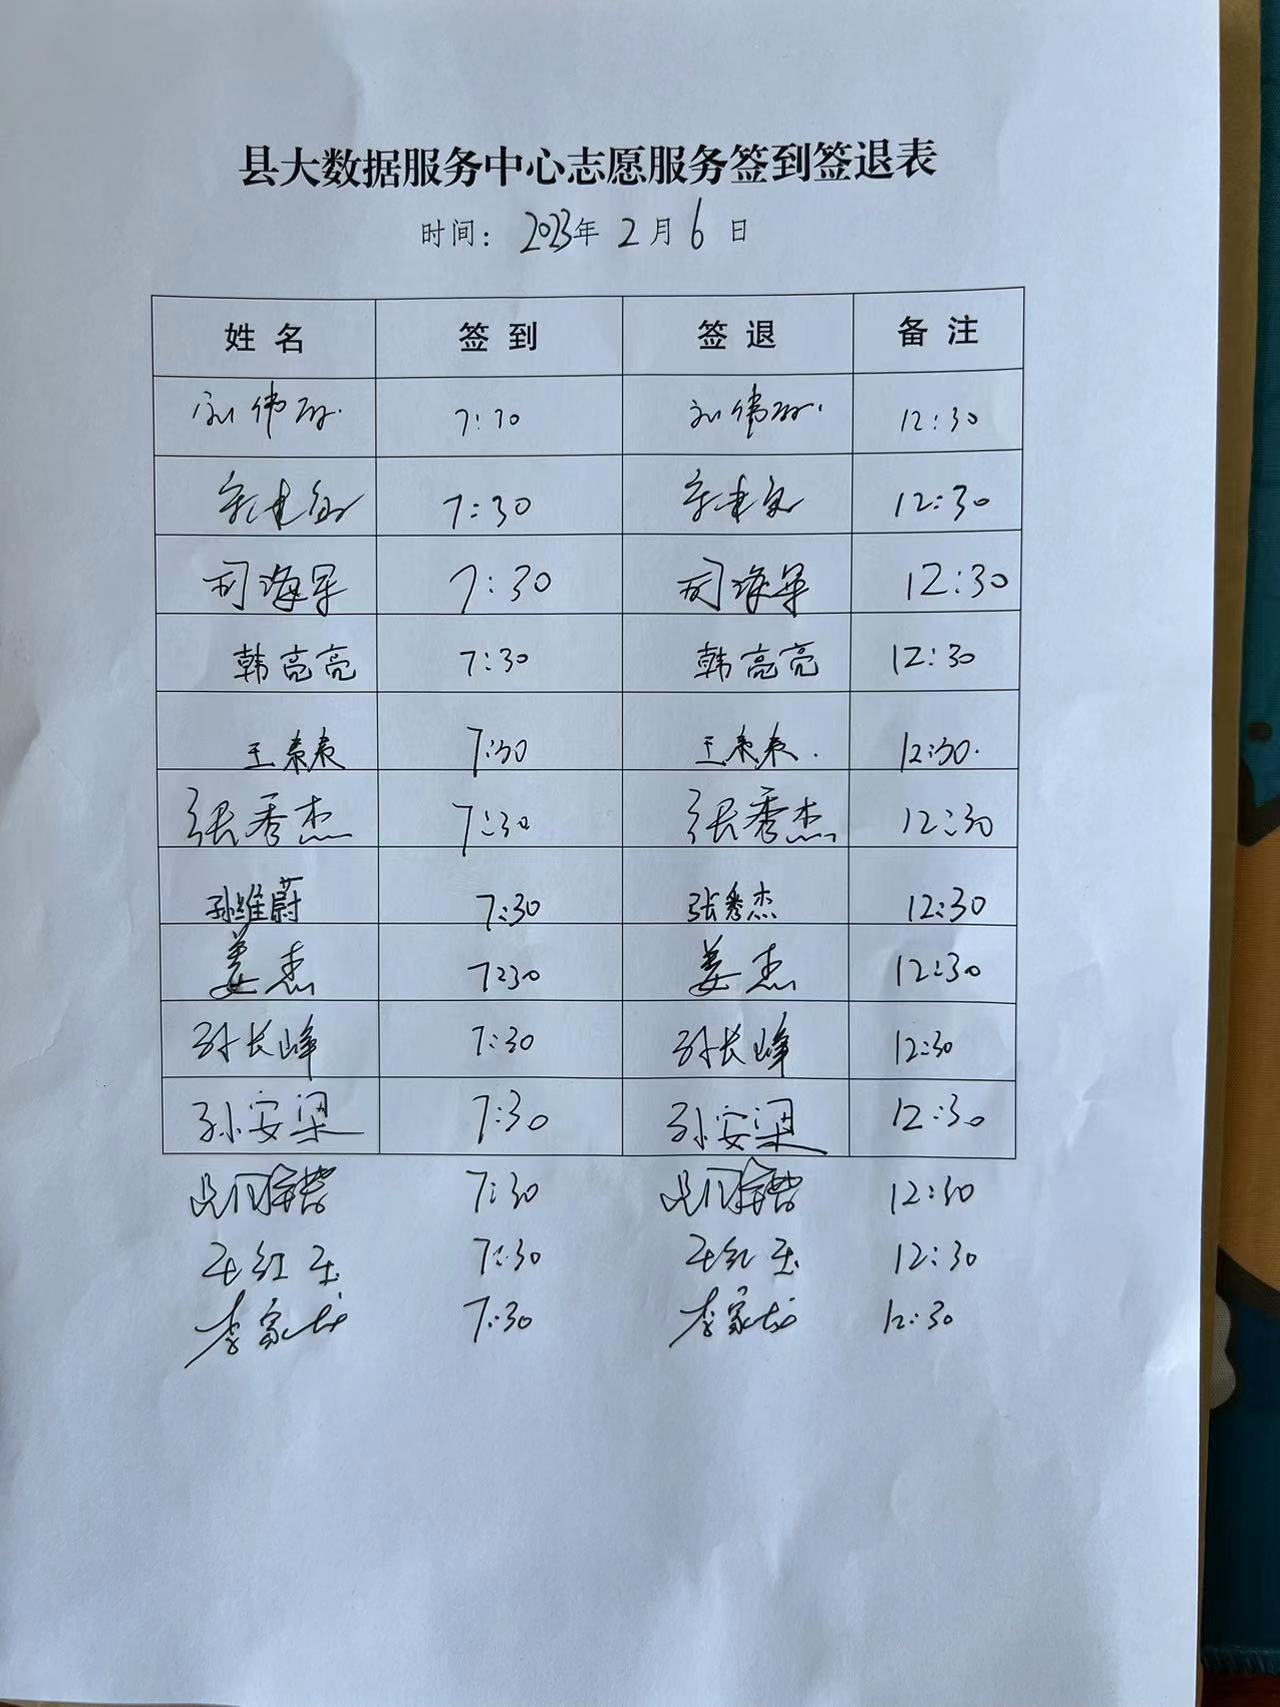 县大数据服务中心志愿服务签到签退表
时间：2023年2月6日
姓名 签到 签退 备注
刘伟 7:30 刘伟 12:30
7:30 12:30
司海军 7:30 司海军 12:30
韩亮亮 7:30 韩亮亮 12:30
王素素 7:30 王素素 12:30
张秀杰 7:30 张秀杰 12:30
孙维蔚 7:30 张秀杰 12:30
姜杰 7:30 姜杰 12:30
孙长峰 7:30 孙长峰 12:30
孙安梁 7:30 孙安梁 12:30
7:30 12:30
红玉 7:30 红玉 12:30
李家龙 7:30 李家龙 12:30